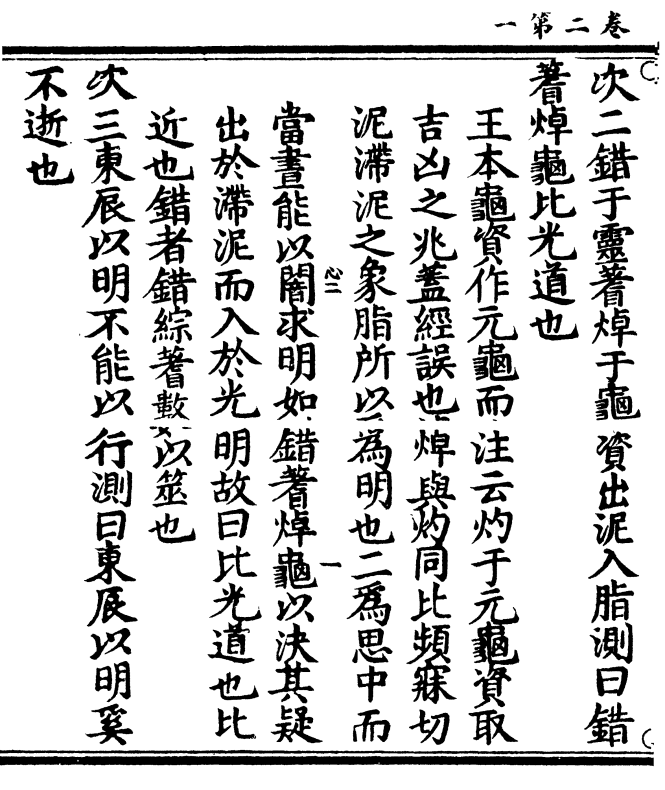 卷二第一
次二錯于靈蓍焯于龜資出泥入脂測曰錯
蓍焯龜比光道也
王本龜資作元龜而注云灼于元龜資取
吉凶之兆蓋經誤也焯與灼同比頻寐切
泥滯泥之象脂所以為明也二為思中而
當晝能以闇求明如錯蓍焯龜以決其疑
出於滯泥而入於光明故曰比光道也比
近也錯者錯綜蓍數以筮也
次三東辰以明不能以行測曰東辰以明奚
不逝也